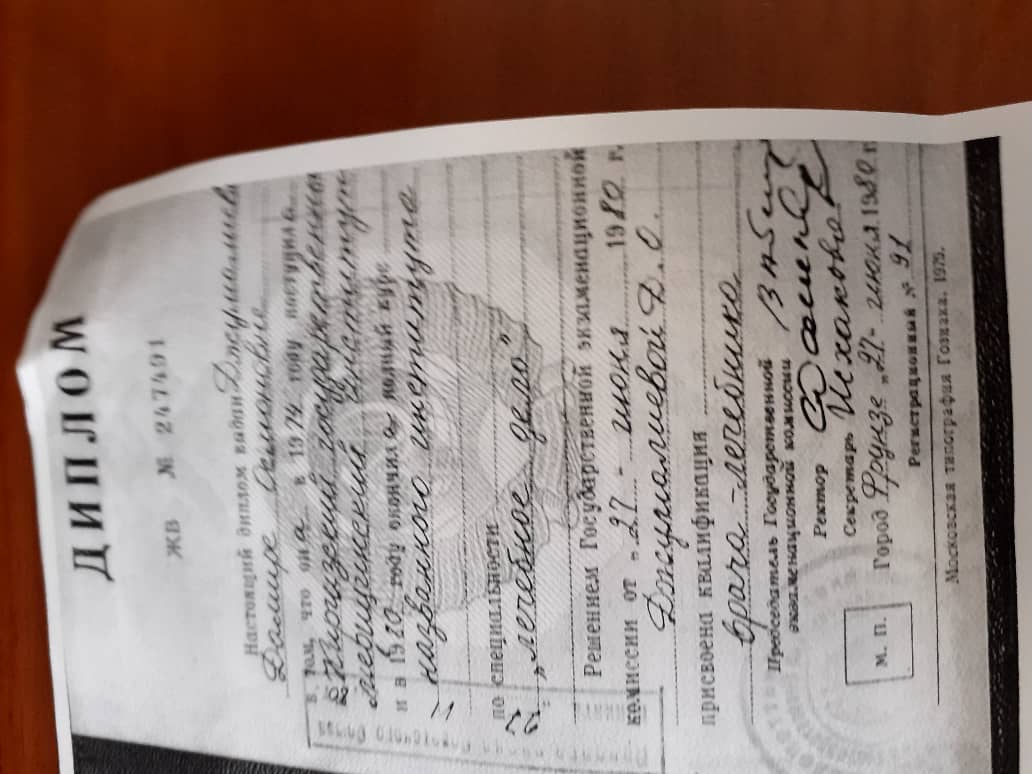 ДИПЛОМ
ЖВ № 247491
Настоящий диплом выдан Джумалиев
Дамире
в том, что она в 1974 году поступила
в Киргизский государственный
медицинский институт
и в 1980 году окончила полный курс
названного института
по специальности
„лечебное дело"
Решением Государственной экзаменационной
комиссии от „27" июня 1980 г.
Джумалиевой Д. О.
присвоена квалификация
врача-лечебника
Председатель Государственной
экзаменационной комиссии
Ректор
Секретарь
М. П.
Город Фрунзе „27" июня 1980 г
Регистрационный № 91
Московская типография Гознака. 1979.